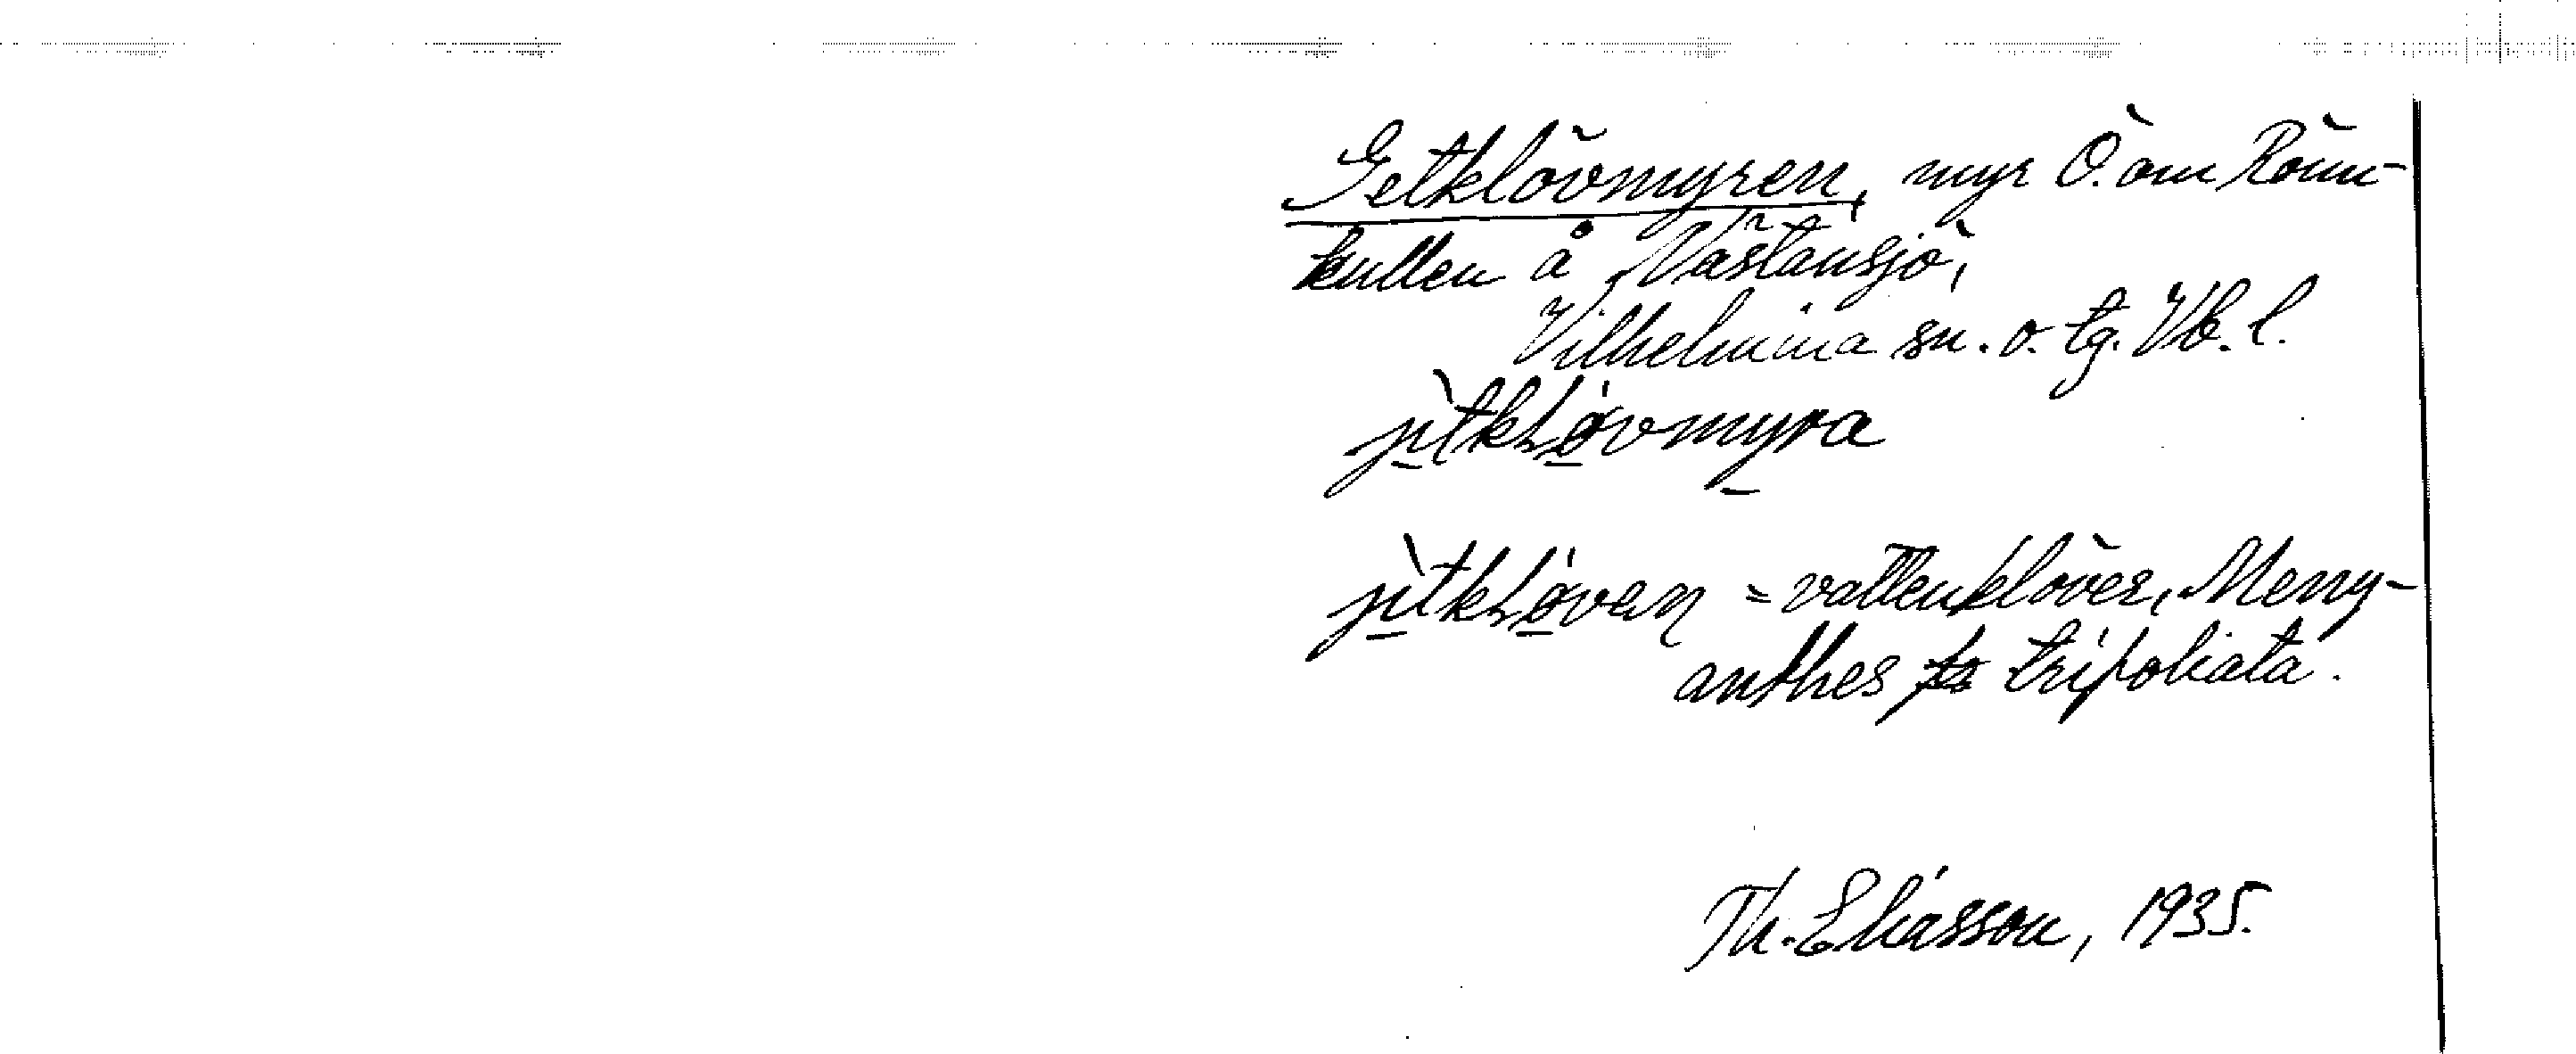 Getklövmyren, myr Ö. om Rönn-
kullen å Västansjö,
Vilhelmina sn. o. tg. Vb. l.
jìtkLövmyra
jìtkLövan = vattenklöver, Meny-
anthes tripoliata.
Th. Eliasson, 1935.